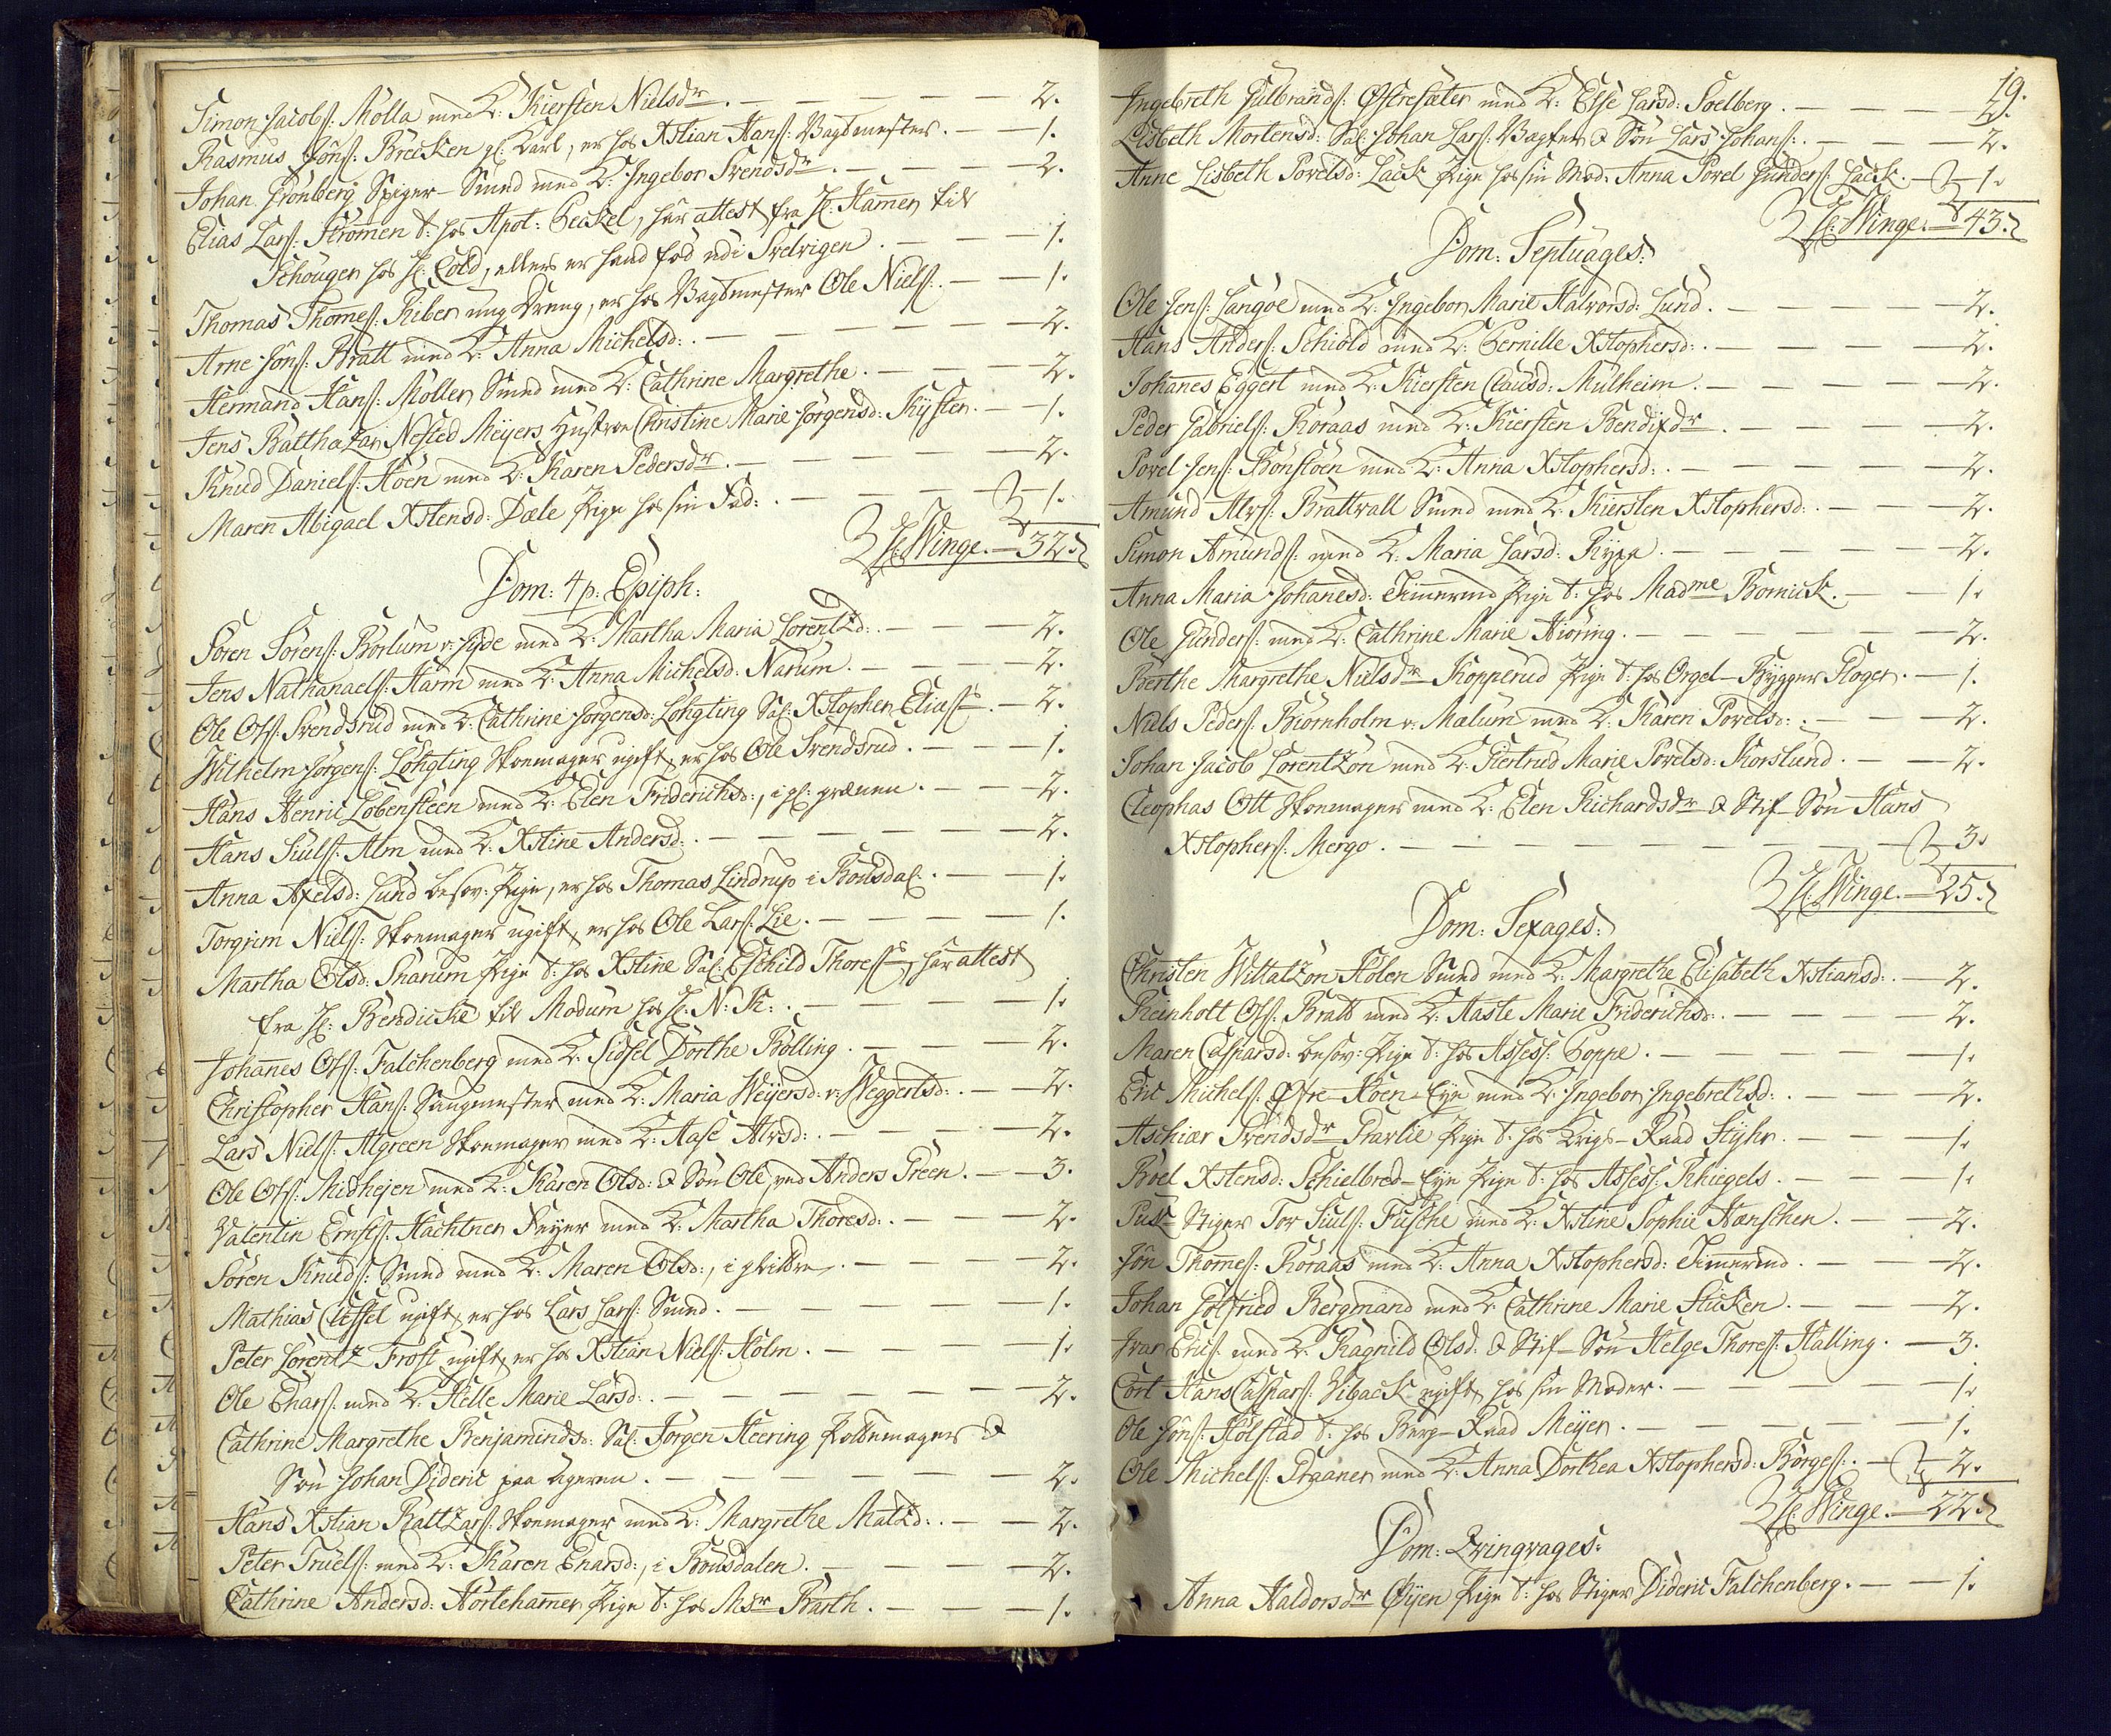 Simon Jacobs: Mölla med K: Kiersten Nielsdr. — 2.
Rasmus Jöns: Brecken gl: Karl, er hos Xstian Hans: Vagtmester. — 1.
Johan Grönberg Spiger-Smed med K: Ingebor Svendsdr. — 2.
Elias Lars: Strömen t: hos Apot: Peckel, har attest fra H: Hamer til
Schougen hos H: Cold, ellers er hand fød udi Svelvigen. — 1.
Thomas Thomes: Riber ung Dreng, er hos Vagtmester Ole Niels: — 1.
Arne Jöns: Bratt med K: Anna Michelsd: — 2.
Hermand Hans: Möller Smed med K: Cathrine Margrethe. — 2.
Jens Balthazar Nested Meyers Hustroe Christine Marie Jörgensd: Kysten. — 1.
Knud Daniels: Hoen med K: Karen Pedersdr. — 2.
Maren Abigael Xstensd: Dæle Pige hos sin Fad: — 1.
H: Winge. — 32.
Dom: 4 p. Epiph:
Sören Sörens: Borlum v: Hyde med K: Martha Maria Lorentzd: — 2.
Jens Nathanaels: Harm med K: Anna Michelsd: Narum. — 2.
Ole Ols: Svendsrud med K: Cathrine Jörgensd: Löhgting Sal: Xstopher Elias — 2.
Wilhelm Jörgens: Löhgting Skoemager ugift, er hos Ole Svendsrud. — 1.
Hans Henric Löbensteen med K: Elen Friderichsd:, i gl: grænen. — 2.
Hans Siuls: Alm med K: Xstine Andersd: — 2.
Anna Axelsd: Lund besov: Pige, er hos Thomas Lindrup i Ronsdal. — 1.
Torgrim Niels: Skoemager ugift, er hos Ole Lars: Lie. — 1.
Martha Olsd: Skarum Pige t: hos Xstine Sal: Eschild Thores, har attest
fra H: Bendicke til Modum hos H: N: K: — 1.
Johanes Ols: Falchenberg med K: Sidsel Dorthe Bölling. — 2.
Christopher Hans: Saugmester med K: Maria Weyersd: v: Weggertsd: — 2.
Lars Niels: Algreen Skoemager med K: Aase Alvsd: — 2.
Ole Ols: Midhejen med K: Karen Olsd: & Sön Ole, ved Anders Preen. — 3.
Valentin Ernsts: Hachtner Feyer med K: Martha Thoresd: — 2.
Sören Knuds: Smed med K: Maren Olsd:, i gl — 2.
Mathias Clessel ugift, er hos Lars Lars: Smed. — 1.
Peter Lorentz Frost ugift, er hos Xstian Niels: Holm. — 1.
Ole Enars: med K: Helle Marie Larsd: — 2.
Cathrine Margrethe Benjaminsd: Sal: Jörgen Heering Pottemager &
Sön Johan Dideric paa Ageren. — 2.
Hans Xstian Baltzars: Skoemager med K: Margrethe Matzd: — 2.
Peter Truels: med K: Karen Enarsd:, i Ronsdalen. — 2.
Cathrine Andersd: Hörtehamer Pige t: hos Msr Barth. — 1.
19.
Ingebreth Gulbrands: Østresæter med K: Else Larsd: Soelberg. — 2.
Lisbeth Mortensd: Sal: Johan Lars: Vægter & Sön Lars Johans: — 2.
Anne Lisbeth Povelsd: Lack Pige hos sin Mod: Anna Povel Gunders: Lack. — 1.
H: Winge. — 43.
Dom: Septuages:
Ole Jens: Langöe med K: Ingebor Marie Halvorsd: Lund. — 2.
Hans Anders: Schiold med K: Pernille Xstophersd: — 2.
Johanes Eggert med K: Kiersten Clausd: Mulheim. — 2.
Peder Gabriels: Röraas med K: Kiersten Bendixdr. — 2.
Povel Jens: Bonstöen med K: Anna Xstophersd: — 2.
Amund Alvs: Brattvall Smed med K: Kiersten Xstophersd: — 2.
Simon Amunds: med K: Maria Larsd: Rypa. — 2.
Anna Maria Johanesd: Timermd Pige t: hos Madme Bornick. — 1.
Ole Gunders: med K: Cathrine Marie Hiöring. — 2.
Berthe Margrethe Nielsdr Kopperud Pige t: hos Orgel-Bygger Kloger. — 1.
Niels Peders: Biörnholm v: Mælum med K: Karen Povelsd: — 2.
Johan Jacob Lorentzön med K: Giertrud Marie Povelsd: Korslund. — 2.
Cleophas Ott Skoemager med K: Elen Richardsdr & Stif-Sön Hans
Xstophers: Mergo. — 3.
H: Winge. — 25.
Dom: Sexages:
Christen Wittatzön Holen Smed med K: Margrethe Elisabeth Xstiansd: — 2.
Reinholt Ols: Bratt med K: Aaste Marie Friderichsd: — 2.
Maren Caspersd: besov: Pige t: hos Assess: Poppe. — 1.
Eric Michels: Øfre-Hoen-Eye med K: Ingebor Ingebrethsd: — 2.
Aschiær Svendsdr Gravlie Pige t: hos Krigs-Raad Hyhr. — 1.
Boel Xstensd: Schielbred-Eye Pige t: hos Assess: Khiegels. — 1.
Puk-Stiger Tor Siuls: Fusche med K: Xstine Sophie Hænschen. — 2.
Jön Thomes: Röraas med K: Anna Xstophersd: Timermd. — 2.
Johan Gotfried Bergmand med K: Cathrine Marie Stücken. — 2.
Ivar Erics: med K: Ragnild Olsd: & Stif-Sön Helge Thores: Halling. — 3.
Cort Hans Caspars: Viback ugift, hos sin Moder. — 1.
Ole Jöns: Holstad t: hos Berg-Raad Meyer. — 1.
Ole Michels: Praaner med K: Anna Dorthea Xstophersd: Börges: — 2.
H: Winge. — 22.
Dom: Qvinqvages:
Anna Haldorsdr Øyen Pige t: hos Stiger Dideric Falchenberg. — 1.